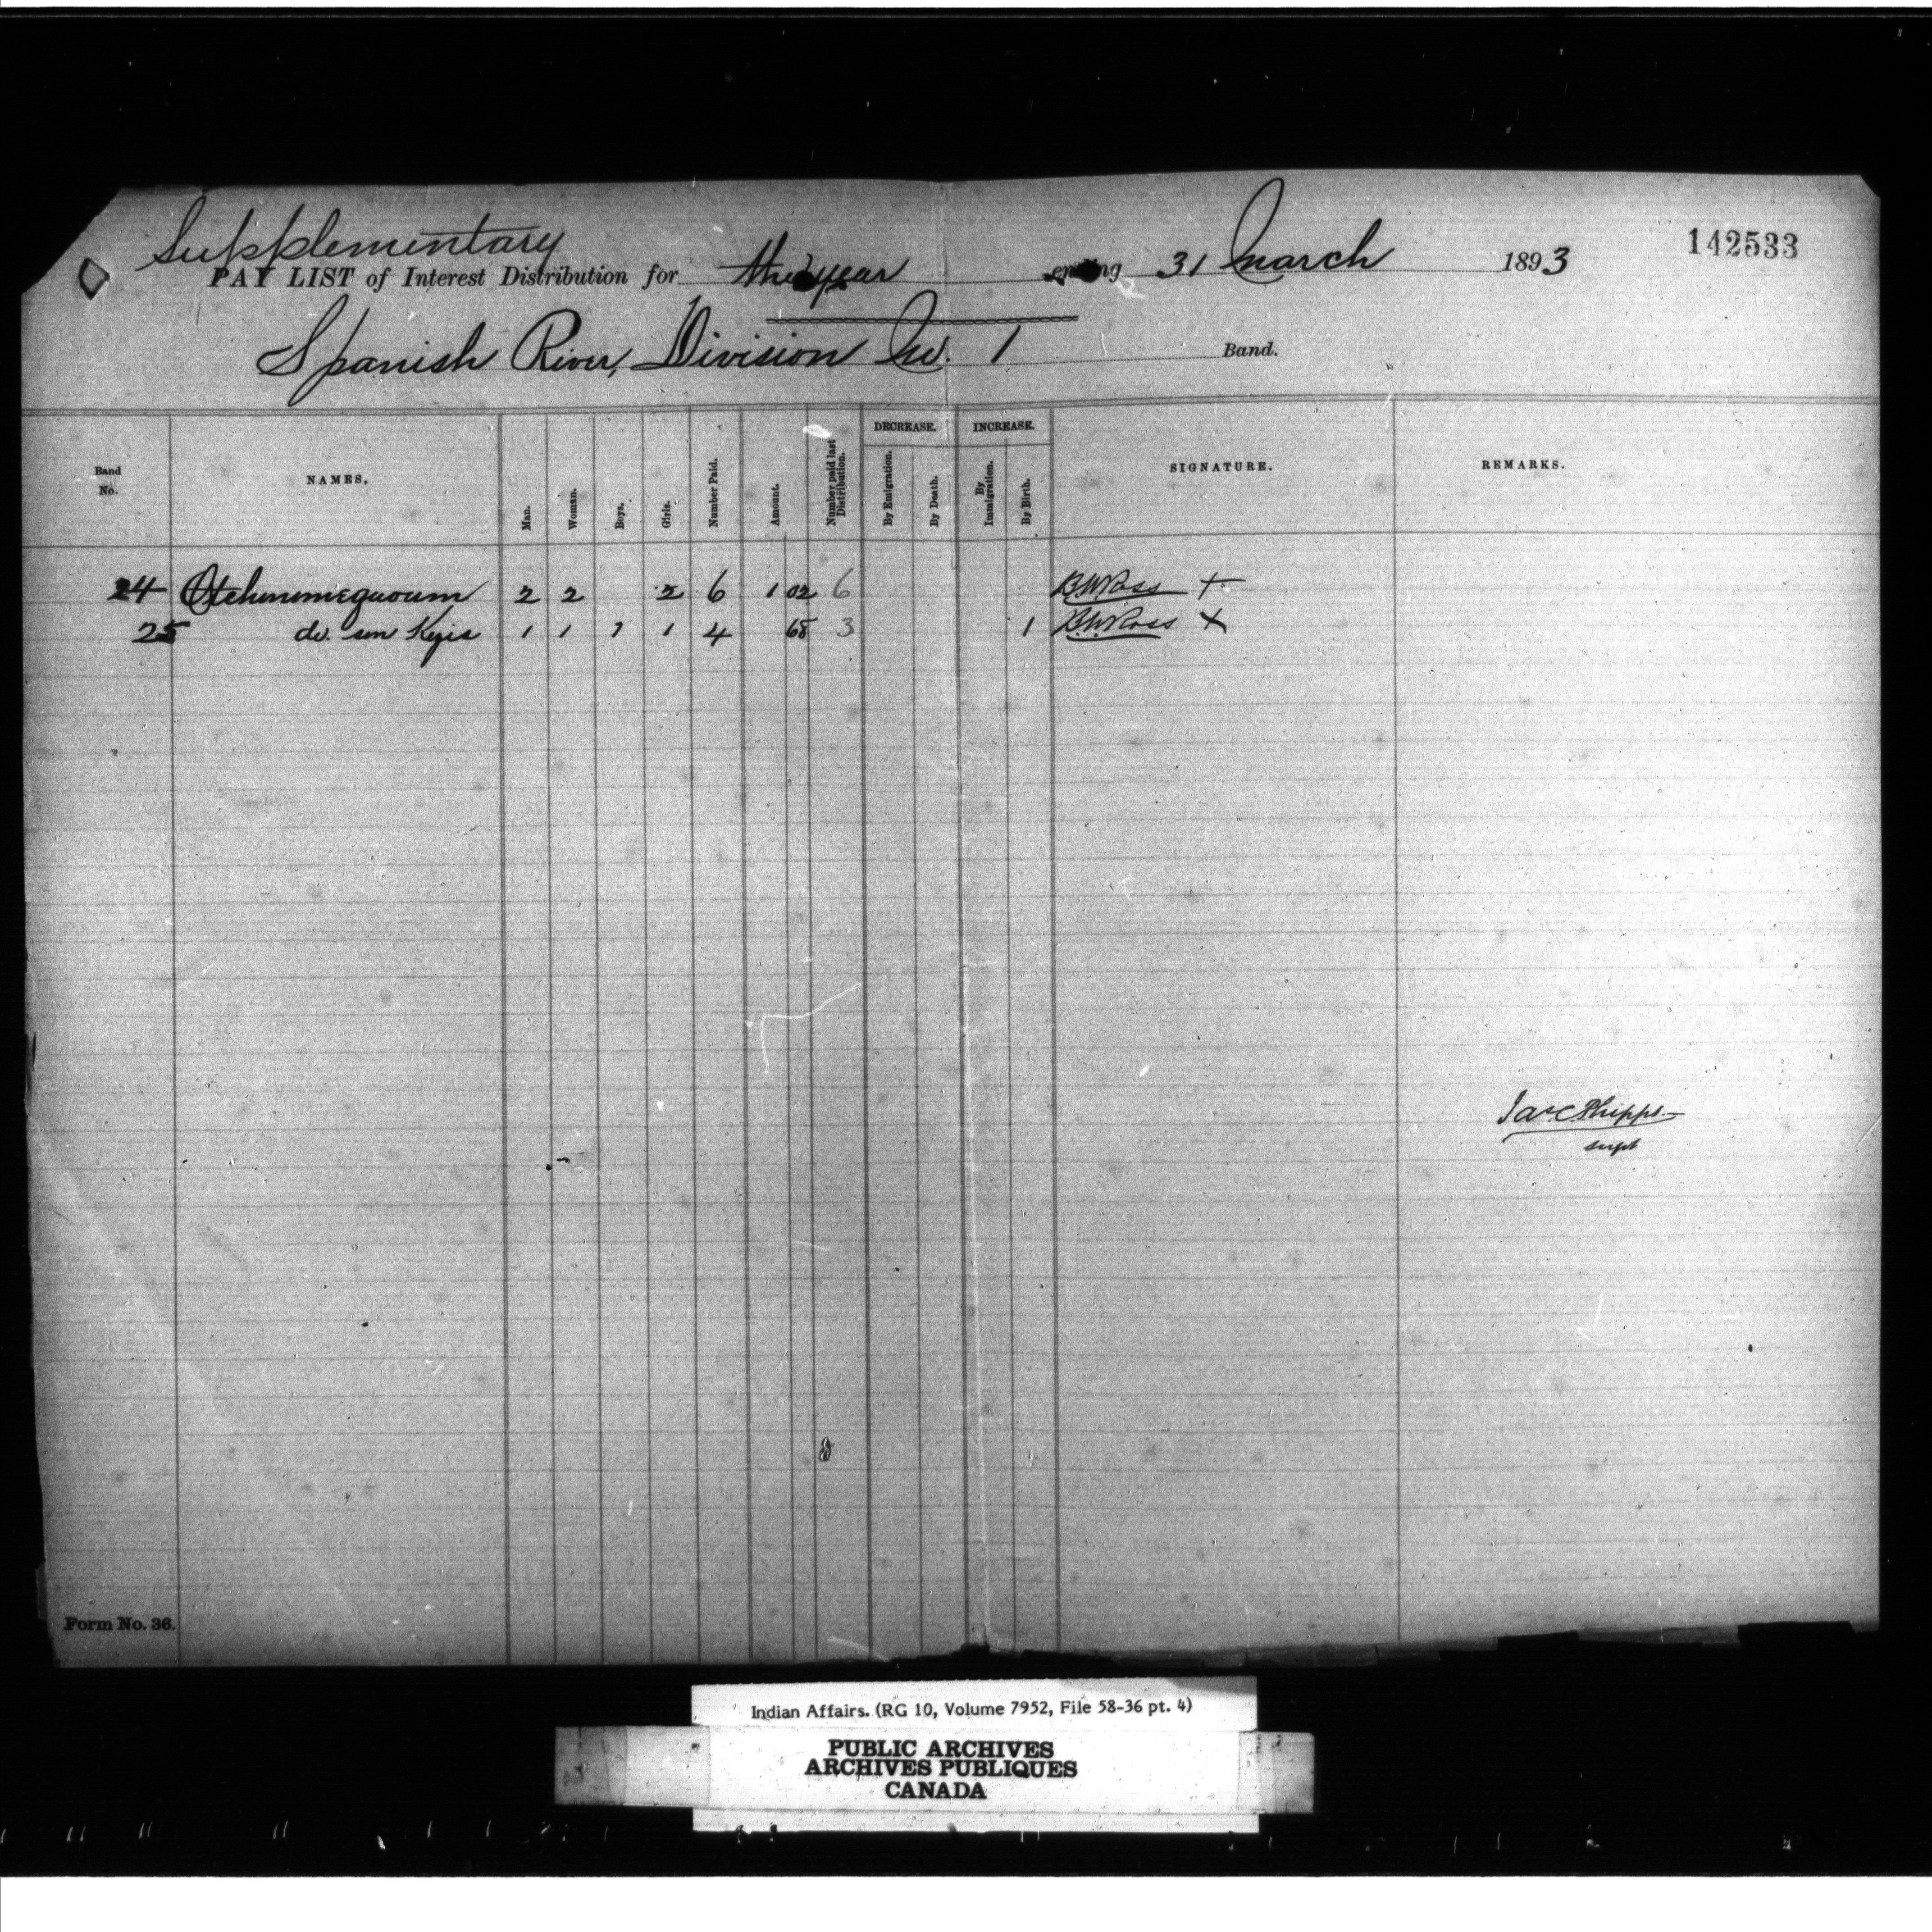 Supplementary
142533
PAY LIST of Interest Distribution for the year ending 31 March 1893
Spanish River, Division No. 1 Band.
Band No. NAMES. Man. Woman. Boys. Girls. Number Paid. Amount. Number paid last Distribution. DECREASE. By Emigration. By Death. INCREASE. By Immigration. By Birth. SIGNATURE. REMARKS.
24 2 2 2 6 1 02 6 B.W. Ross +
25 do. son Kyis 1 1 1 1 4 68 3 1 B.W. Ross X
Jas C Phipps
Supt
Form No. 36.
Indian Affairs. (RG 10, Volume 7952, File 58-36 pt. 4)
PUBLIC ARCHIVES
ARCHIVES PUBLIQUES
CANADA